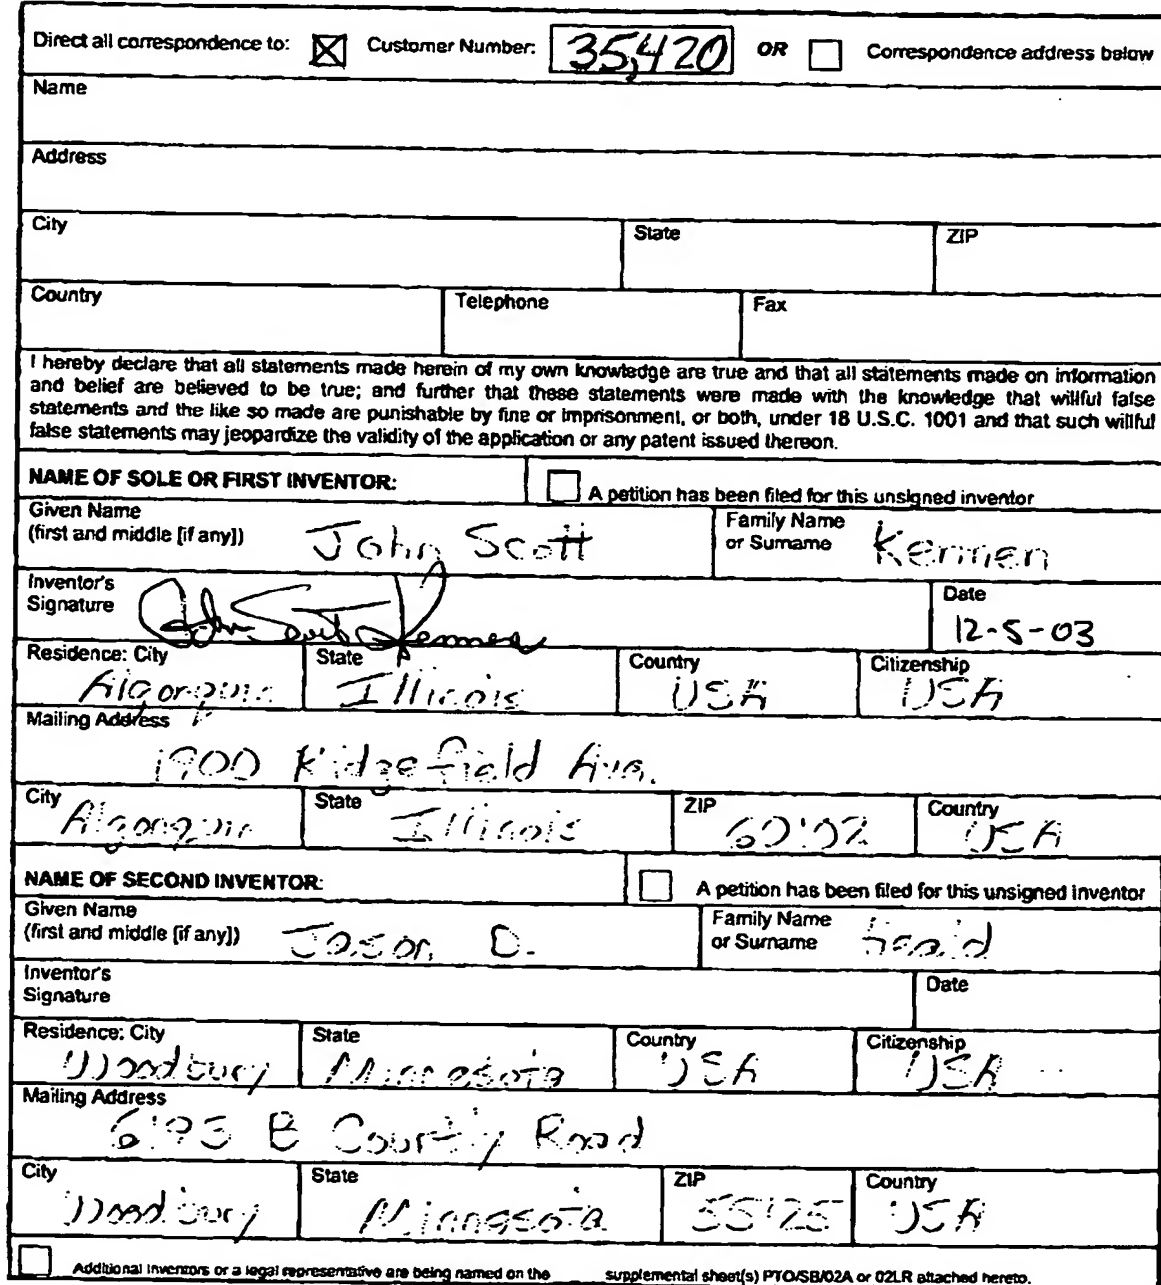 Direct all correspondence to: Customer Number: 35,420 OR Correspondence address below
Name
Address
City State ZIP
Country Telephone Fax
I hereby declare that all statements made herein of my own knowledge are true and that all statements made on information
and belief are believed to be true; and further that these statements were made with the knowledge that willful false
statements and the like so made are punishable by fine or imprisonment, or both, under 18 U.S.C. 1001 and that such willful
false statements may jeopardize the validity of the application or any patent issued thereon.
NAME OF SOLE OR FIRST INVENTOR: A petition has been filed for this unsigned inventor
Given Name
(first and middle [if any]) John Scott
Family Name
or Surname Kermen
Inventor's
Signature
Date
12-5-03
Residence: City State Country Citizenship
Illinois USA USA
Mailing Address
1900 Ridgefield Ave.
City State ZIP Country
Algonquin Illinois 60102 USA
NAME OF SECOND INVENTOR: A petition has been filed for this unsigned inventor
Given Name
(first and middle [if any]) Jason D.
Family Name
or Surname
Inventor's
Signature
Date
Residence: City State Country Citizenship
Woodbury Minnesota USA USA
Mailing Address
County Road
City State ZIP Country
Woodbury Minnesota 55125 USA
Additional inventors or a legal representative are being named on the supplemental sheet(s) PTO/SB/02A or 02LR attached hereto.